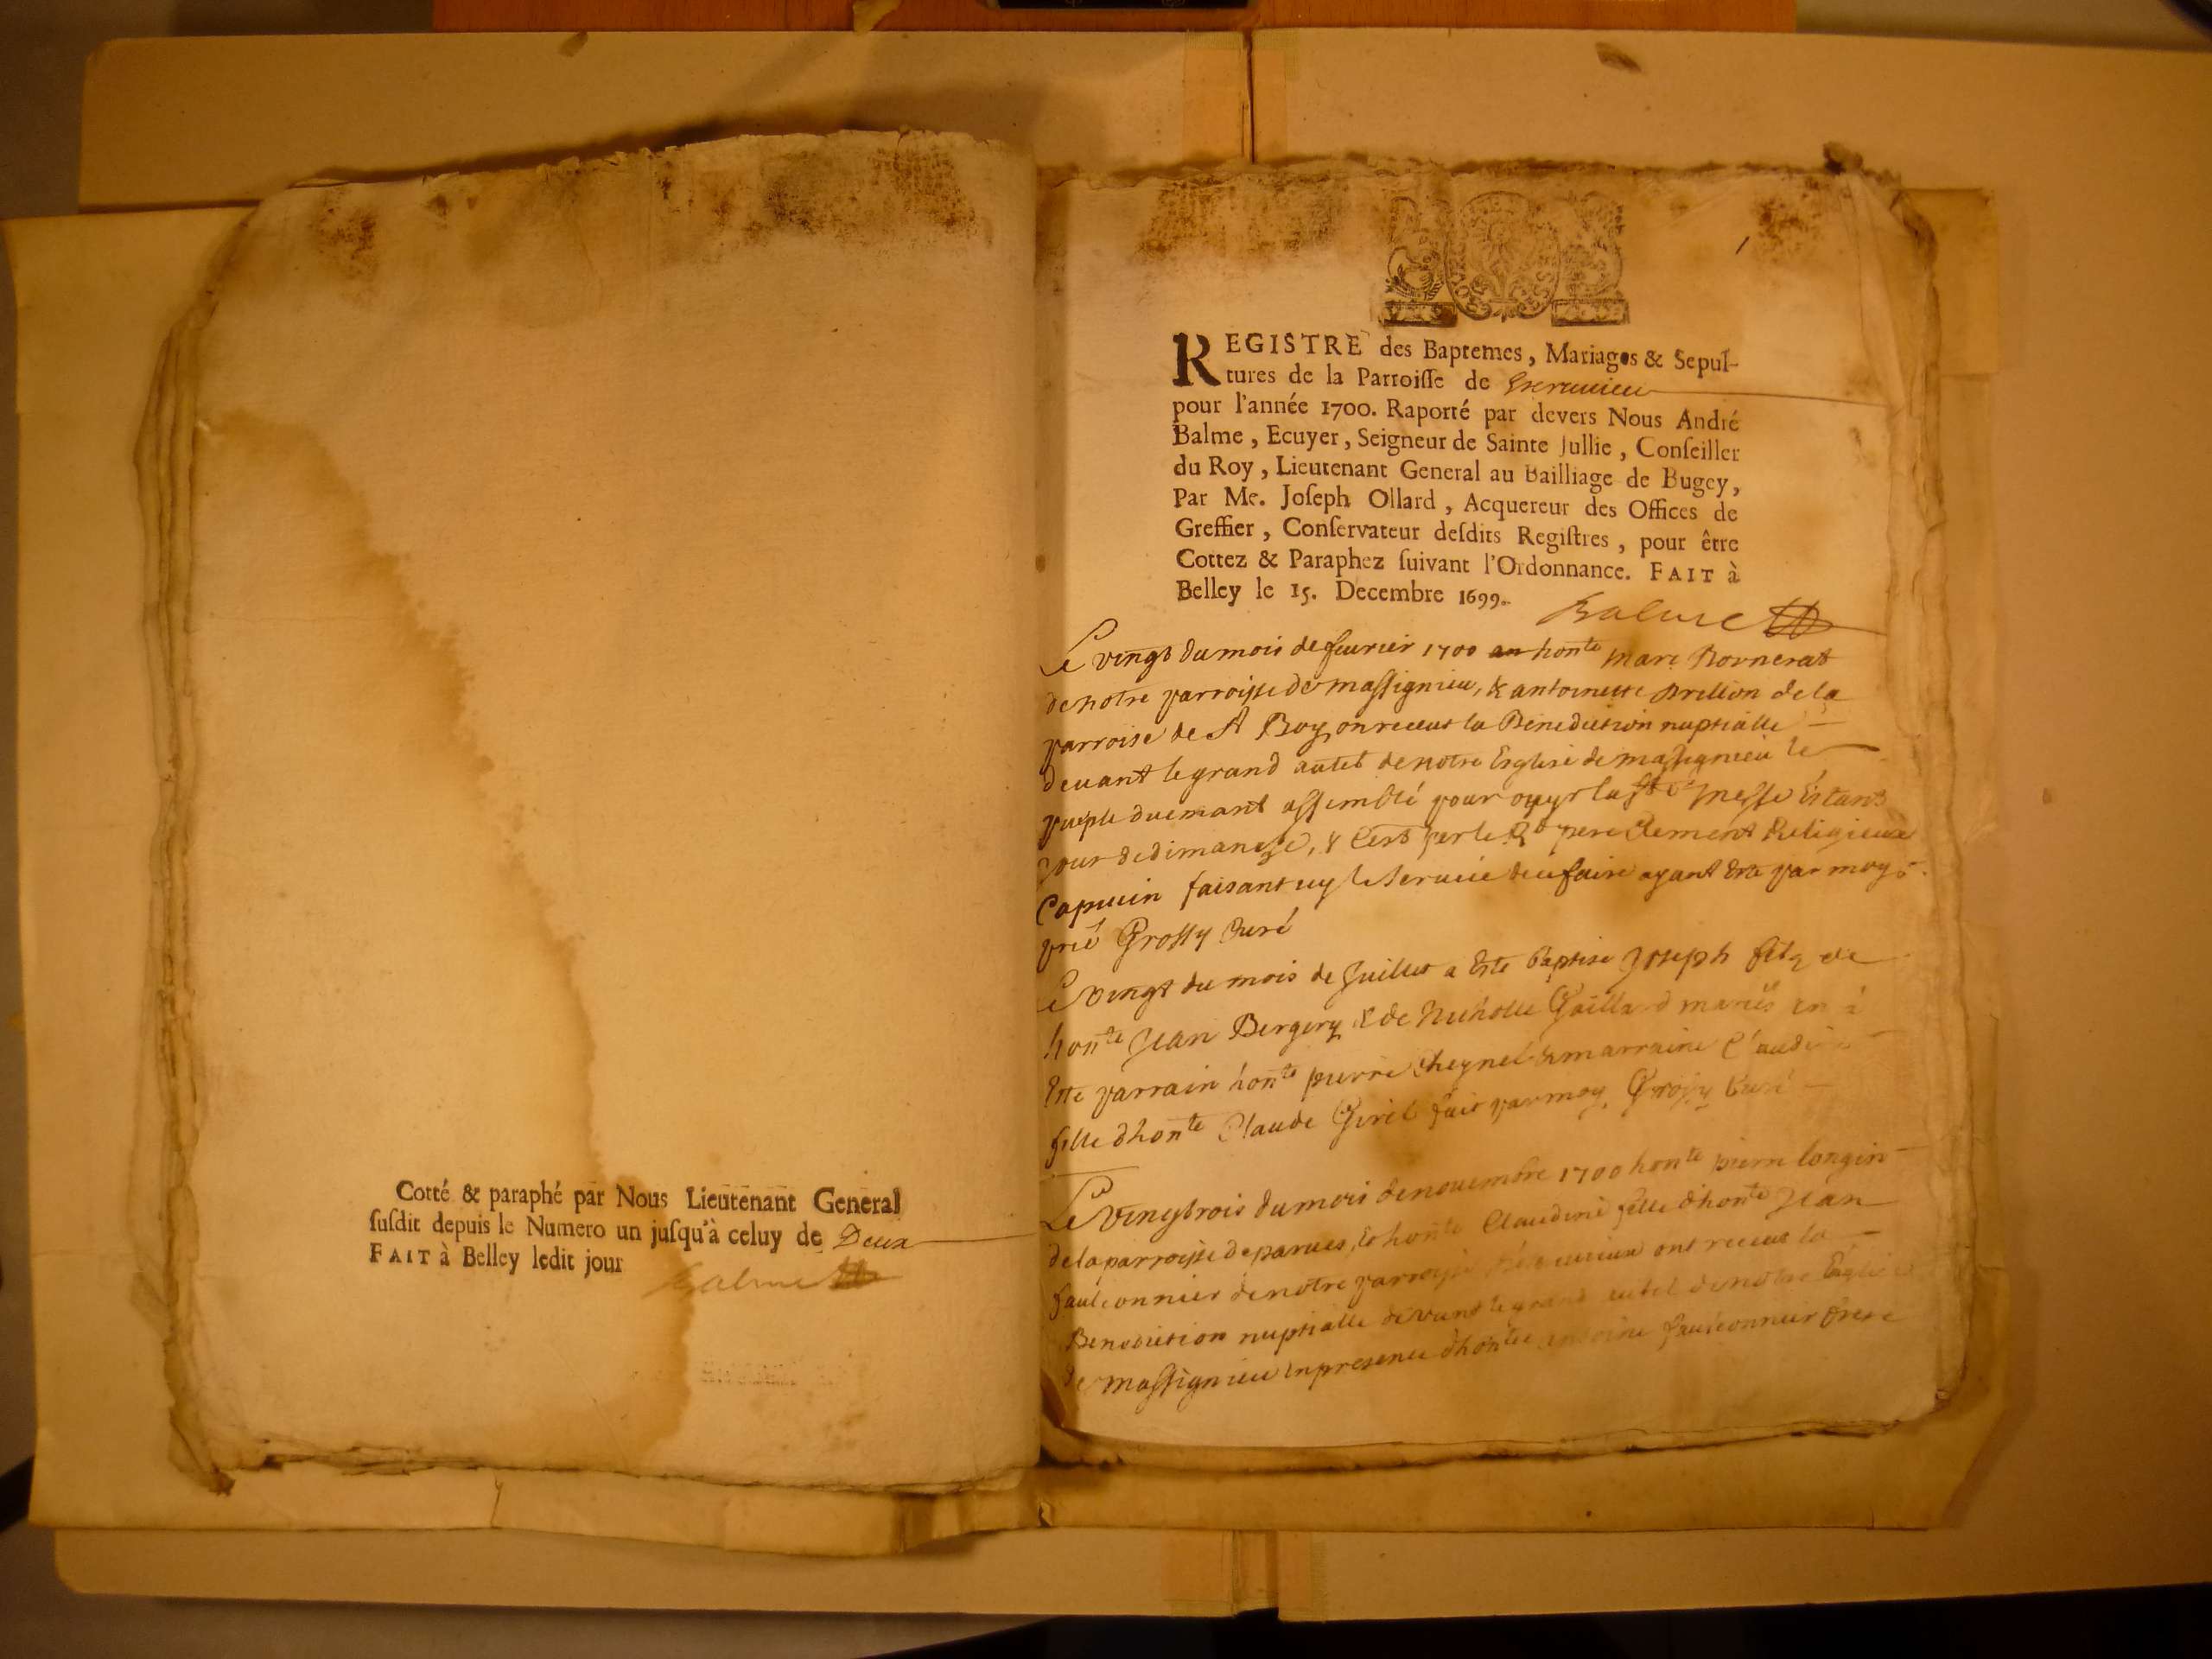 Cotté & paraphé par Nous Lieutenant General
susdit depuis le Numero un jusqu'à celuy de Deux
FAIT à Belley ledit jour
Balme
1
REGISTRE des Baptemes, Mariages & Sepul-
tures de la Parroisse de
pour l'année 1700. Raporté par devers Nous André
Balme, Ecuyer, Seigneur de Sainte Jullie, Conseiller
du Roy, Lieutenant General au Bailliage de Bugey,
Par Me. Joseph Ollard, Acquereur des Offices de
Greffier, Conservateur desdits Registres, pour être
Cottez & Paraphez suivant l'Ordonnance. FAIT à
Belley le 15. Decembre 1699.
Balme
Le vingt du mois de feurier 1700 honte marc
de notre parroisse de massignieu, & antoinette de la
parroise de Boy on receut la Benediction nuptialle
deuant le grand autel de notre Esglise de massignieu le
peuple assemblé pour la ste messe Estant
jour de dimanche, & c'est par le pere Clement Religieux
Capucin faisant icy le seruice de ce faire ayant Este par moy
prié Grossy Curé
Le vingt du mois de Juillet a Este baptisé Joseph filz de
honte Jean Bergery & de Nicholle Gaillard mariés en a
Este parrain honte pierre Cheynel & marraine Claudine
fille dhonte Claude Girel fait par moy Grossy Curé
Le vingtrois du mois de nouembre 1700 honte pierre longin
de la parroisse de parues, & honte Claudine fille dhonte Jean
fauleonnier de notre parroisse ont receut la
Benediction nuptialle deuant le grand autel de notre Esglise
de massignieu en presence dhonte antoine fauleonnier frere